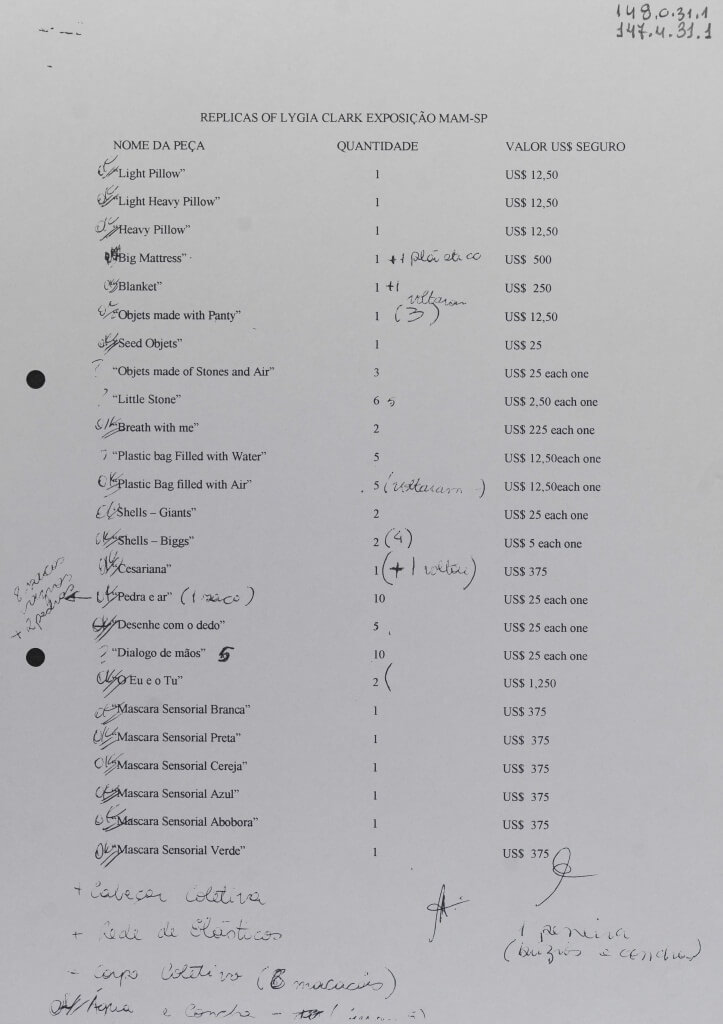 148.0.31.1
147.4.31.1
REPLICAS OF LYGIA CLARK EXPOSIÇÃO MAM-SP
NOME DA PEÇA QUANTIDADE VALOR US$ SEGURO
OK Light Pillow” 1 US$ 12,50
OK Light Heavy Pillow” 1 US$ 12,50
OK Heavy Pillow” 1 US$ 12,50
Big Mattress” 1 +1 plástico US$ 500
OK Blanket” 1 +1 US$ 250
voltaram
OK Objets made with Panty” 1 (3) US$ 12,50
OK Seed Objets” 1 US$ 25
? “Objets made of Stones and Air” 3 US$ 25 each one
? “Little Stone” 6 5 US$ 2,50 each one
OK Breath with me” 2 US$ 225 each one
? “Plastic bag Filled with Water” 5 US$ 12,50each one
OK Plastic Bag filled with Air” 5 (voltaram -) US$ 12,50each one
OK Shells – Giants” 2 US$ 25 each one
OK Shells – Biggs” 2 (4) US$ 5 each one
OK Cesariana” 1 (+1 voltou) US$ 375
8 sacos
+ 2 pedras
OK Pedra e ar” (1 saco) 10 US$ 25 each one
OK Desenhe com o dedo” 5 US$ 25 each one
? “Dialogo de mãos” 5 10 US$ 25 each one
OK O Eu e o Tu” 2 ( US$ 1,250
OK “Mascara Sensorial Branca” 1 US$ 375
OK “Mascara Sensorial Preta” 1 US$ 375
OK Mascara Sensorial Cereja” 1 US$ 375
OK “Mascara Sensorial Azul” 1 US$ 375
OK “Mascara Sensorial Abobora” 1 US$ 375
OK “Mascara Sensorial Verde” 1 US$ 375
+ Cabeça Coletiva
+ Rede de Elásticos
1 peneira
(buzios e conchas)
- Corpo Coletivo (6 macacões)
OK Água e Concha - 1